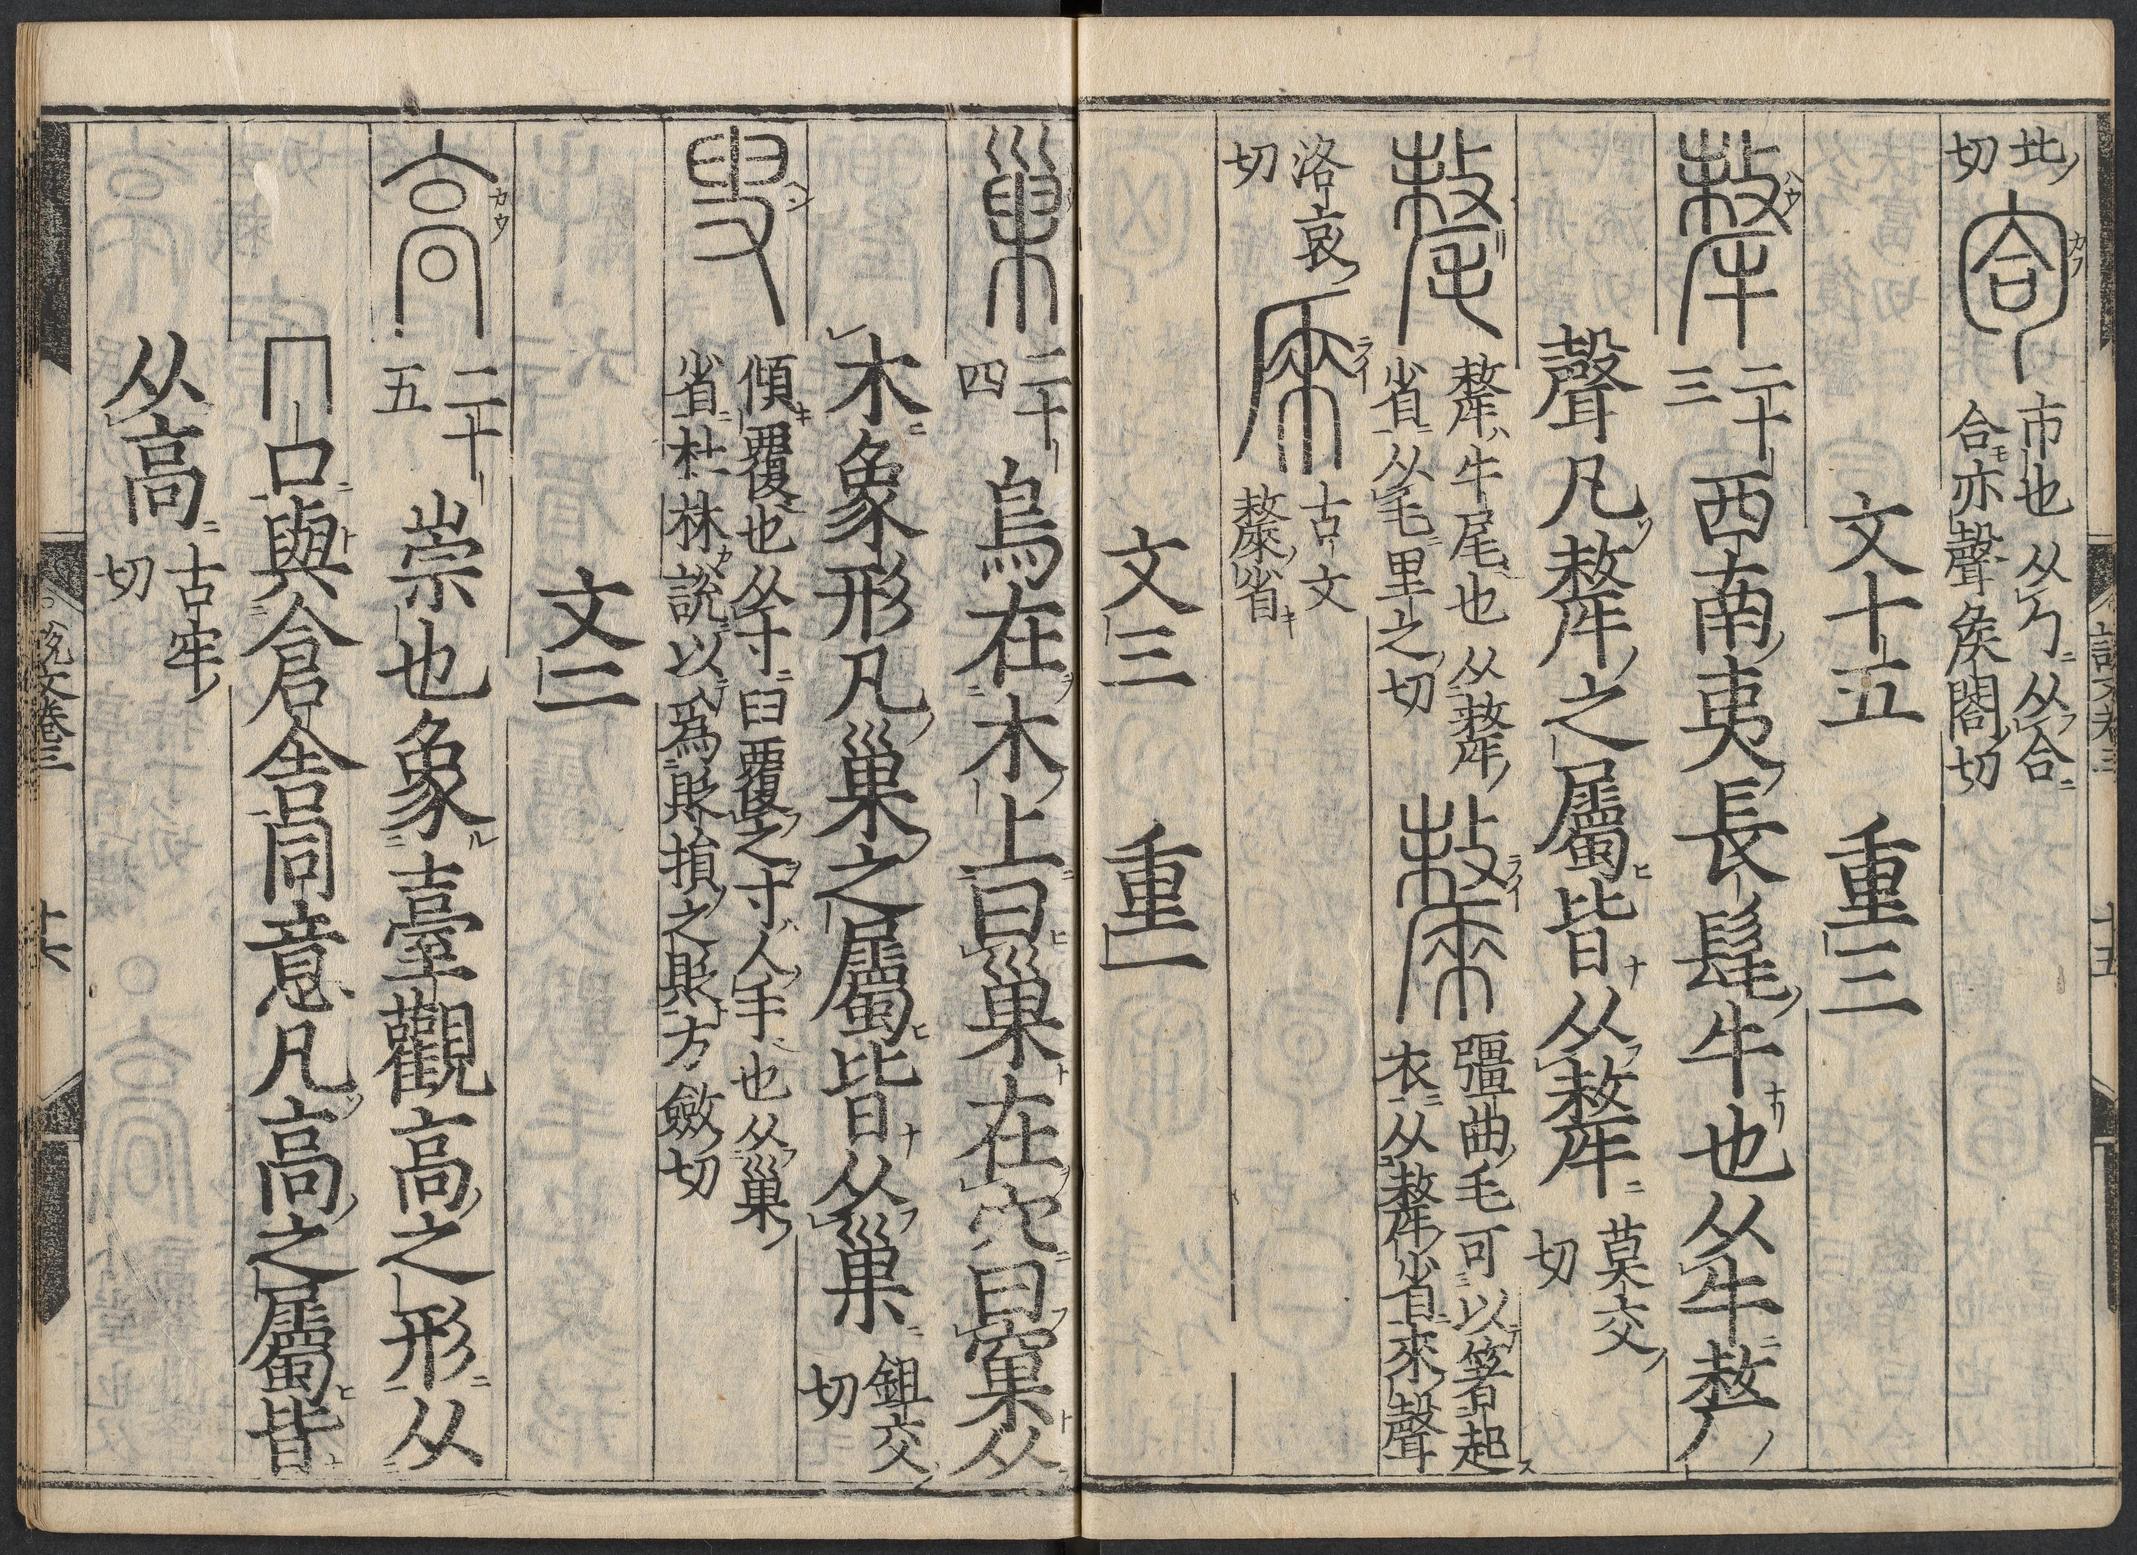 北
切
匌
帀也从勹从合
合亦聲矦閤切
文十五 重三
犛
二十
三
西南夷長髦牛也从牛𠩺
聲凡犛之屬皆从犛
莫交
切
氂
犛牛尾也从犛
省从毛里之切
斄
彊曲毛可以箸起
衣从犛省來聲
洛哀
切
𠩬
古文
斄省
文三 重一
巢
二十
四
鳥在木上曰巢在穴曰窠从
木象形凡巢之屬皆从巢
鉏交
切
𠬛
傾覆也从寸臼覆之寸人手也从巢
省杜林說以爲貶損之貶方斂切
文二
高
二十
五
崇也象臺觀高之形从
冂口與倉舍同意凡高之屬皆
从高
古牢
切
說文卷三 十五
說文卷三 十六